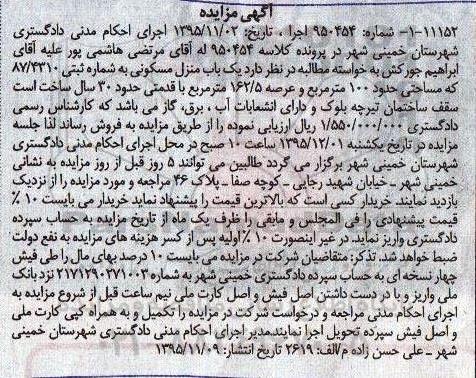 آگهی مزایده
۱۱۱۵۲-۱- شماره: ۹۵۰۴۵۴ اجرا ، تاریخ: ۱۳۹۵/۱۱/۰۲ اجرای احکام مدنی دادگستری
شهرستان خمینی شهر در پرونده کلاسه ۹۵۰۴۵۴ له آقای مرتضی هاشمی پور علیه آقای
ابراهیم جورکش به خواسته مطالبه در نظر دارد یک باب منزل مسکونی به شماره ثبتی ۸۷/۴۳۱۰
که مساحتی حدود ۱۰۰ مترمربع و عرصه ۱۶۲/۵ مترمربع با قدمتی حدود ۳۰ سال ساخت است
سقف ساختمان تیرچه بلوک و دارای انشعابات آب ، برق، گاز می باشد که کارشناس رسمی
دادگستری ۱/۵۵۰/۰۰۰/۰۰۰ ریال ارزیابی نموده را از طریق مزایده به فروش رساند لذا جلسه
مزایده در تاریخ یکشنبه ۱۳۹۵/۱۲/۰۱ ساعت ۱۰ صبح در محل اجرای احکام مدنی دادگستری
شهرستان خمینی شهر برگزار می گردد طالبین می توانند ۵ روز قبل از روز مزایده به نشانی
خمینی شهر - خیابان شهید رجایی - کوچه صفا - پلاک ۴۶ مراجعه و مورد مزایده را از نزدیک
بازدید نمایند. خریدار کسی است که بالاترین قیمت را پیشنهاد نماید خریدار می بایست ۱۰ ٪
قیمت پیشنهادی را فی المجلس و مابقی را ظرف یک ماه از تاریخ مزایده به حساب سپرده
دادگستری واریز نماید. در غیر اینصورت ۱۰ ٪ اولیه پس از کسر هزینه های مزایده به نفع دولت
ضبط خواهد شد. تذکر: متقاضیان شرکت در مزایده می بایست ۱۰ درصد بهای مال را طی فیش
چهار نسخه ای به حساب سپرده دادگستری خمینی شهر به شماره ۲۱۷۱۲۹۰۲۷۱۰۰۳ نزد بانک
ملی واریز و با در دست داشتن اصل فیش و اصل کارت ملی نیم ساعت قبل از شروع مزایده به
اجرای احکام مدنی مراجعه و درخواست شرکت در مزایده را تکمیل و به همراه کپی کارت ملی
و اصل فیش سپرده تحویل اجرا نمایند.مدیر اجرای احکام مدنی دادگستری شهرستان خمینی
شهر - علی حسن زاده م/الف: ۲۶۱۹ تاریخ انتشار: ۱۳۹۵/۱۱/۰۹